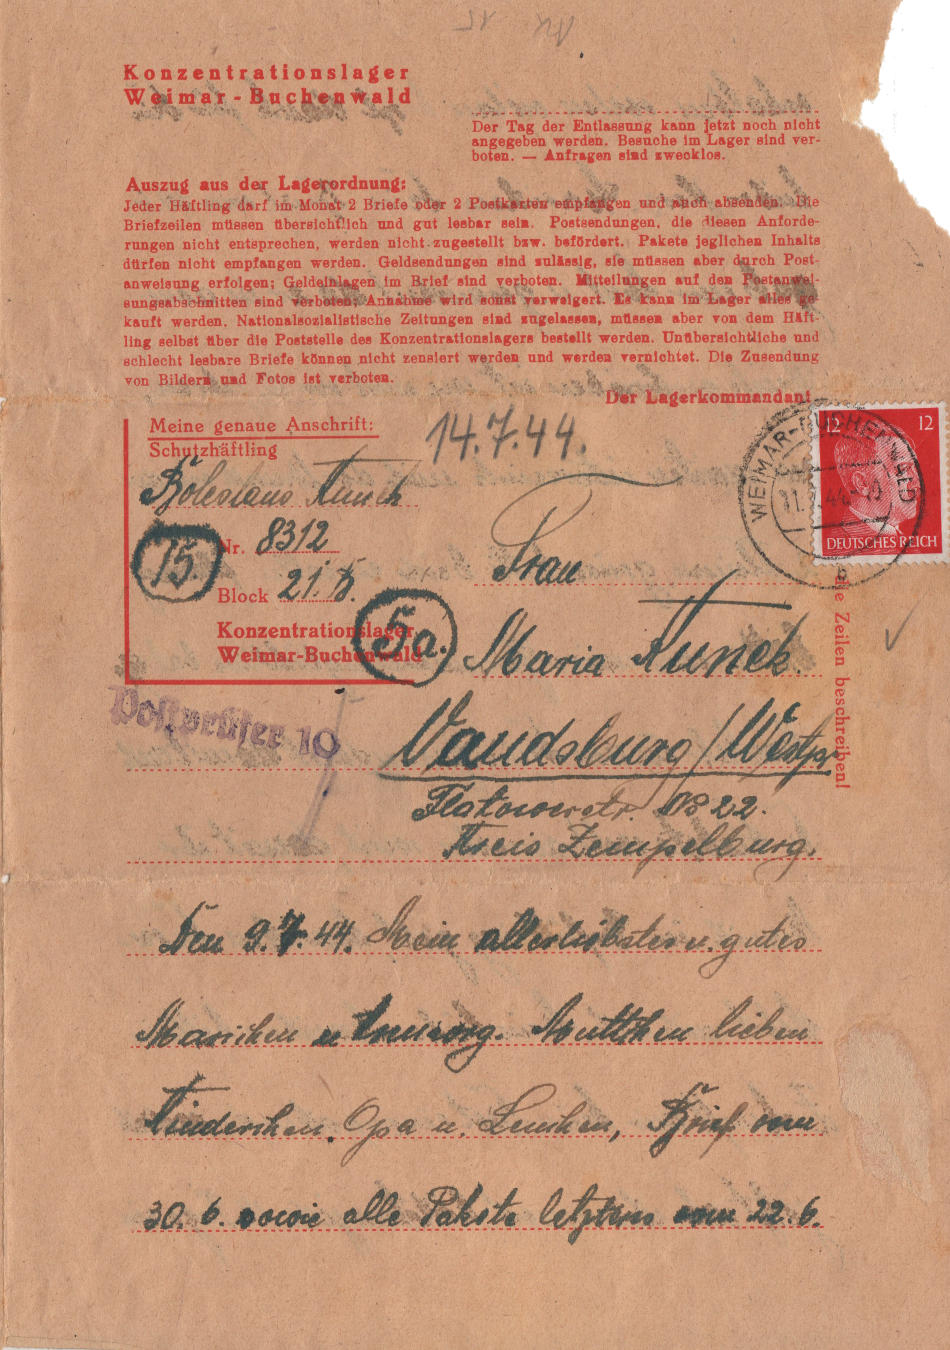 Konzentrationslager
Weimar-Buchenwald
Der Tag der Entlassung kann jetzt noch nicht
angegeben werden. Besuche im Lager sind ver-
boten. — Anfragen sind zwecklos.
Auszug aus der Lagerordnung:
Jeder Häftling darf im Monat 2 Briefe oder 2 Postkarten empfangen und auch absenden. Die
Briefzeilen müssen übersichtlich und gut lesbar sein. Postsendungen, die diesen Anforde-
rungen nicht entsprechen, werden nicht zugestellt bzw. befördert. Pakete jeglichen Inhalts
dürfen nicht empfangen werden. Geldsendungen sind zulässig, sie müssen aber durch Post-
anweisung erfolgen; Geldeinlagen im Brief sind verboten. Mitteilungen auf den Postanwei-
sungsabschnitten sind verboten; Annahme wird sonst verweigert. Es kann im Lager alles ge-
kauft werden. Nationalsozialistische Zeitungen sind zugelassen, müssen aber von dem Häft-
ling selbst über die Poststelle des Konzentrationslagers bestellt werden. Unübersichtliche und
schlecht lesbare Briefe können nicht zensiert werden und werden vernichtet. Die Zusendung
von Bildern und Fotos ist verboten.
Der Lagerkommandant
Meine genaue Anschrift:
Schutzhäftling
14.7.44.
12 12
WEIMAR-BUCHENWALD
DEUTSCHES REICH
b
Boleslaus Kunek
15.
Nr. 8312
Block 21. B.
Konzentrationslager
Weimar-Buchenwald
5a.
Frau
Maria Kunek
Postprüfer 10
Vandsburg/Westpr
Flatowerstr. No 22.
Kreis Zempelburg.
die Zeilen beschreiben!
Den 9.7.44. Mein allerliebstes u. gutes
Marichen u Muttchen lieben
Kinderchen, Opa u. Lenchen, Brief vom
30. 6. sowie alle Pakete letztens vom 22.6.